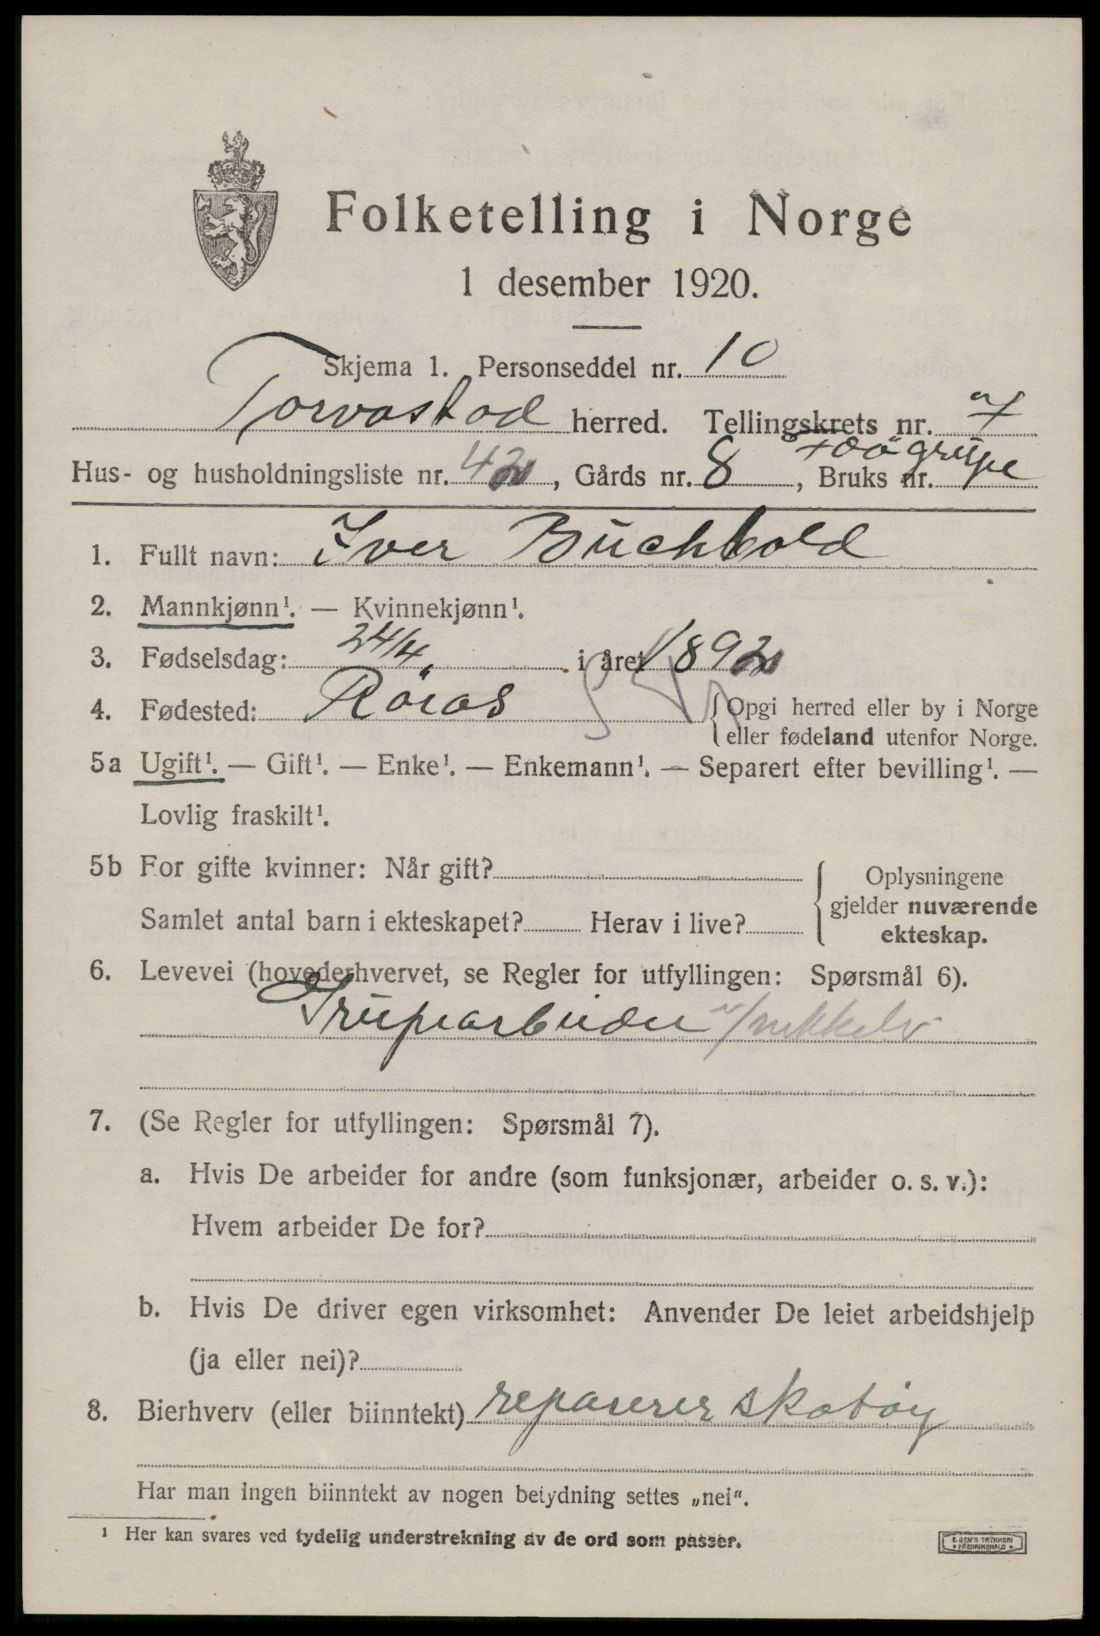 Folketelling i Norge
1 desember 1920.
Skjema 1. Personseddel nr. 10
Torvastad herred. Tellingskrets nr. 7
Hus- og husholdningsliste nr. 42, Gårds nr. 8, Bruks nr. Feøy grupe
1. Fullt navn: Iver Buchhold
2. Mannkjønn¹. — Kvinnekjønn¹.
3. Fødselsdag: 24/4. i året 1892
4. Fødested: Röros {Opgi herred eller by i Norge
eller fødeland utenfor Norge.
5a Ugift¹. — Gift¹. — Enke¹. — Enkemann¹. — Separert efter bevilling¹. —
Lovlig fraskilt¹.
5b For gifte kvinner: Når gift?
Samlet antal barn i ekteskapet? Herav i live?
Oplysningene
gjelder nuværende
ekteskap.
6. Levevei (hovederhvervet, se Regler for utfyllingen: Spørsmål 6).
Grupearbeider v/nikkelv
7. (Se Regler for utfyllingen: Spørsmål 7).
a. Hvis De arbeider for andre (som funksjonær, arbeider o. s. v.):
Hvem arbeider De for?
b. Hvis De driver egen virksomhet: Anvender De leiet arbeidshjelp
(ja eller nei)?
8. Bierhverv (eller biinntekt) reparerer skotöy
Har man ingen biinntekt av nogen betydning settes „nei“.
¹ Her kan svares ved tydelig understrekning av de ord som passer.